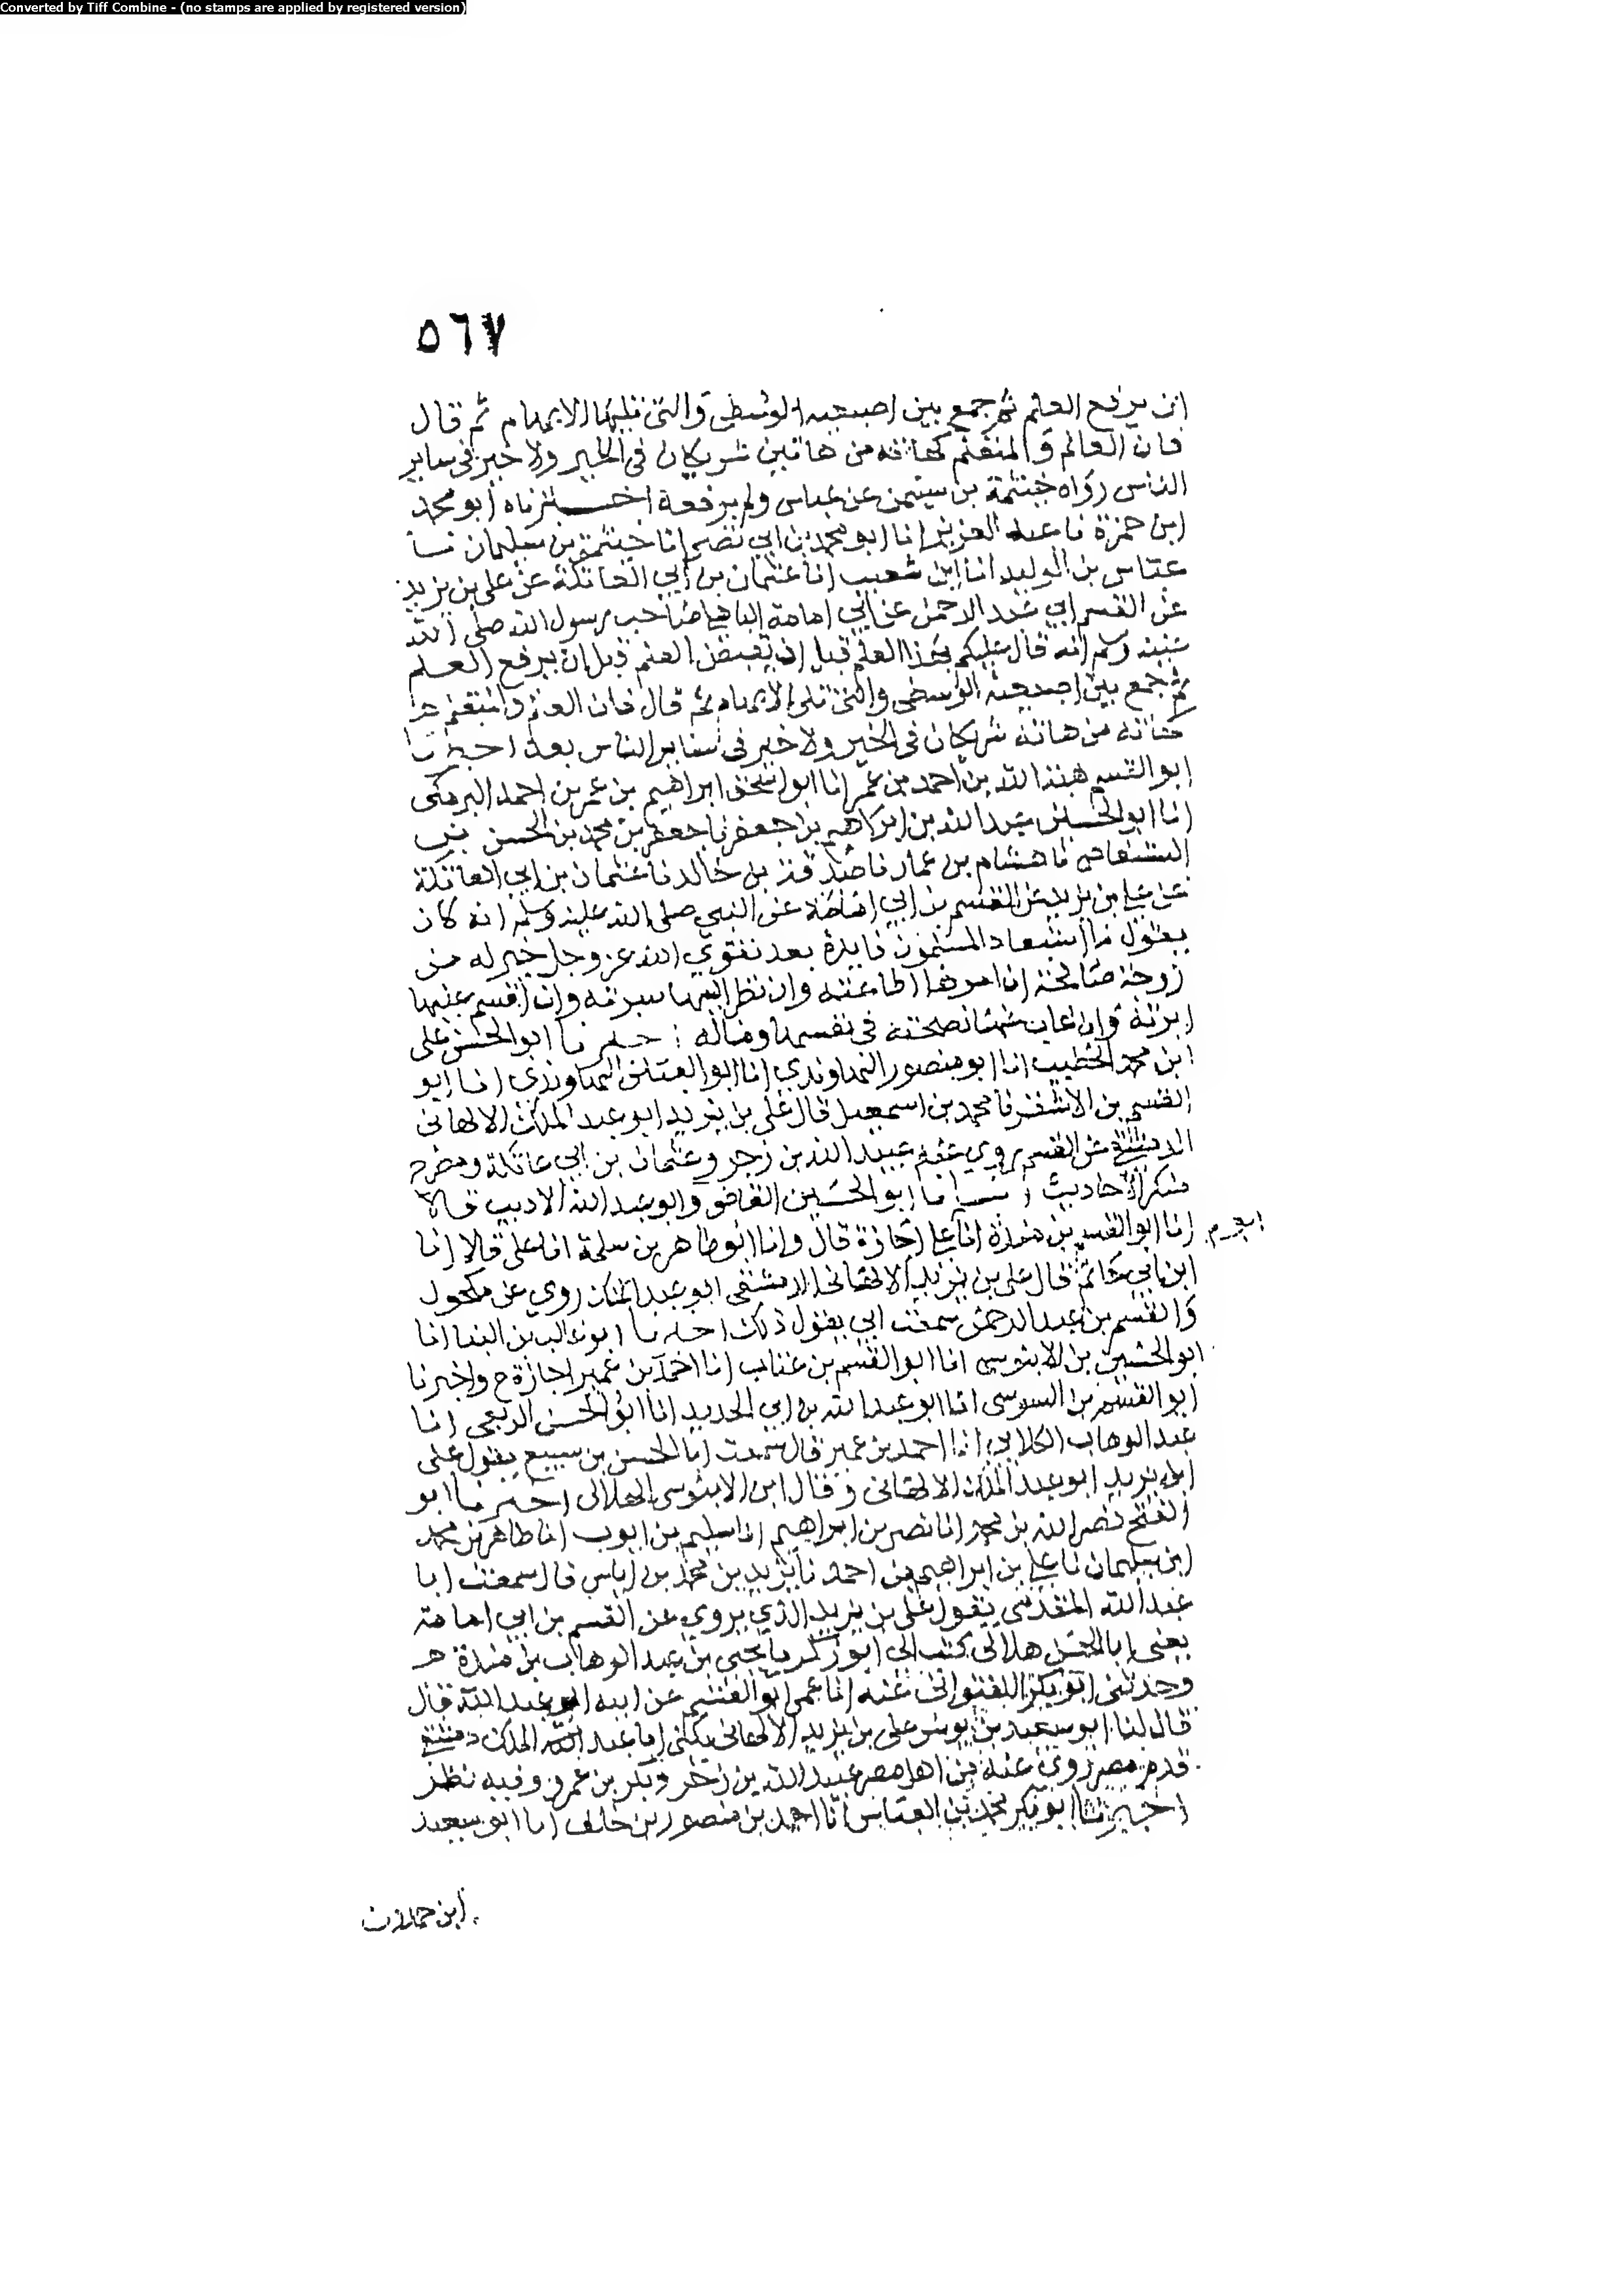 Converted by Tiff Combine - (no stamps are applied by registered version)
٥٦٧
ان يرفع العلم ثم جمع بين اصبعيه الوسطى والتي تليها الابهام ثم قال
فان العالم والمتعلم كهاته من هاتين شريكان في الخير ولا خير في ساير
الناس رواه خيثمة بن سليمن عن عباس ولم يرفعه اخبرناه ابو محمد
ابن حمزة نا عبد العزيز انا ابو محمد بن ابي نصر انا خيثمة بن سليمان نا
عباس بن الوليد انا ابن شعيب انا عثمان بن ابي العاتكة عن علي بن يزيد
عن القسم ابي عبد الرحمن عن ابي امامة الباهلي صاحب رسول الله صلى الله
عليه وسلم انه قال عليكم بهذا العلم قبل ان يقبض العلم وقبل ان يرفع العلم
ثم جمع بين اصبعيه الوسطى والتي تلي الابهام ثم قال فان العالم والمتعلم
كهاته من هاته شريكان في الخير ولا خير في ساير الناس بعد اخبرنا
ابو القسم هبة الله بن احمد بن عمر انا ابو اسحق ابراهيم بن عمر بن احمد البرمكي
انا ابو الحسين عبد الله بن ابراهيم بن جعفر نا جعفر بن محمد بن الحسن بن
المستفاض نا هشام بن عمار نا صدقة بن خالد نا عثمان بن ابي العاتكة
عن علي بن يزيد عن القسم بن ابي امامة عن النبي صلى الله عليه وسلم انه كان
يقول ما استفاد المسلمون فايدة بعد تقوى الله عز وجل خير له من
زوجة صالحة ان امرها اطاعته وان نظر اليها سرته وان اقسم عليها
ابرته وان غاب عنها نصحته في نفسها وماله اخبرنا ابو الحسن علي
ابن محمد الخطيب انا ابو منصور النهاوندي انا ابو العباس النهاوندي انا ابو
القسم بن الاشقر نا محمد بن اسمعيل قال علي بن يزيد ابو عبد الملك الالهاني
الدمشقي عن القسم روى عنه عبيد الله بن زحر وعثمان بن ابي عاتكة ومطرح
منكر الاحاديث انبانا ابو الحسين القاضي وابو عبد الله الاديب قالا
انا ابو القسم بن مندة انا علي اجازة قال وانا ابو طاهر بن سلمة انا علي قالا انا
ابن ابي حاتم قال علي بن يزيد الالهاني الدمشقي ابو عبد الملك روى عن مكحول
والقسم بن عبد الرحمن سمعت ابي يقول ذلك اخبرنا ابو غالب بن البنا انا
ابو الحسين بن الابنوسي انا ابو القسم بن عتاب انا احمد بن عمير اجازة ح واخبرنا
ابو القسم بن السوسي انا ابو عبد الله بن ابي الحديد انا ابو الحسن الربعي انا
عبد الوهاب الكلابي انا احمد بن عمير قال سمعت ابا الحسن بن سميع يقول علي
ابن يزيد ابو عبد الملك الالهاني وقال ابن الابنوسي الهلالي اخبرنا ابو
الفتح نصر الله بن محمد انا نصر بن ابراهيم انا سليم بن ايوب انا طاهر بن محمد
ابن سليمان نا علي بن ابراهيم بن احمد نا يزيد بن محمد بن اياس قال سمعت ابا
عبد الله المقدمي يقول علي بن يزيد الذي يروي عن القسم بن ابي امامة
يعني ابا الحسن هلالي كتب الي ابو زكريا يحيى بن عبد الوهاب بن مندة ح
وحدثني ابو بكر اللفتواني عنه انا عمي ابو القسم عن ابيه ابو عبد الله قال
قال لنا ابو سعيد بن يونس علي بن يزيد الالهاني يكنى ابا عبد الملك دمشقي
قدم مصر روى عنه من اهل مصر عبيد الله بن زحر وبكر بن عمرو وفيه نظر
اخبرنا ابو بكر محمد بن العباس انا احمد بن منصور بن خلف انا ابو سعيد
ابن حمدون